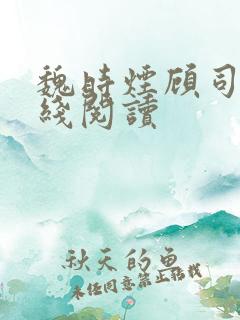 魏時煙顾司
綫閱讀
秋天的魚
未经同意禁止转载